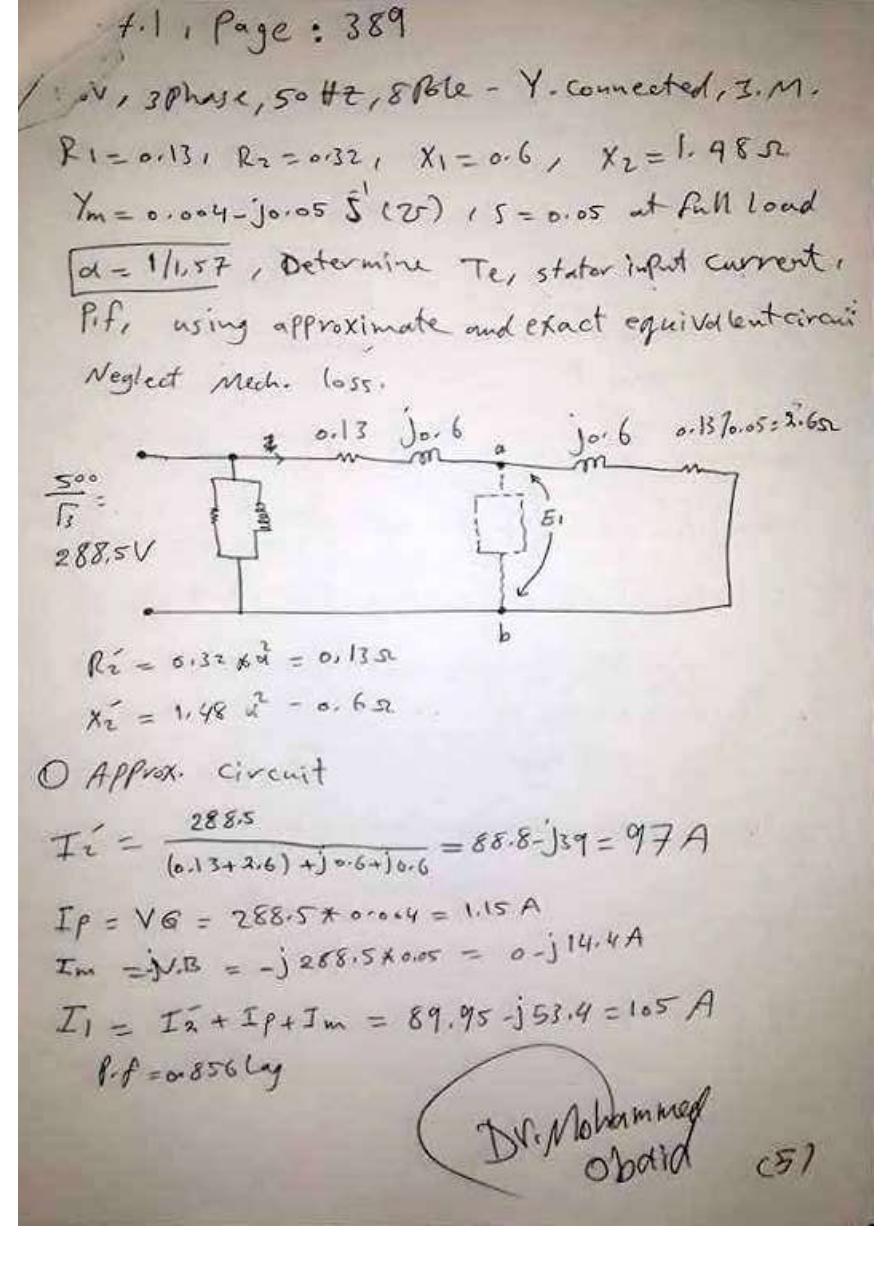 7.1, Page : 389
V, 3 Phase, 50 HZ, 8 Pole - Y. Connected, I.M.
R1 = 0.13, R2 = 0.32, X1 = 0.6, X2 = 1.48 Ω
Ym = 0.004 - j0.05 Ω⁻¹ (℧), S = 0.05 at full load
α = 1/1.57, Determine Te, stator input current,
P.f, using approximate and exact equivalent circuit
Neglect Mech. loss.
0.13 j0.6 a j0.6 0.13/0.05 = 2.6Ω
500/√3 =
E1
288.5V
b
R2′ = 0.32 * α² = 0,13 Ω
X2′ = 1.48 α² = 0.6 Ω
① Approx. Circuit
I2′ = 288.5 / ((0.13+2.6) + j0.6 + j0.6) = 88.8 - j39 = 97 A
Ip = VG = 288.5 * 0.004 = 1.15 A
Im = -jV.B = -j 288.5 * 0.05 = 0 - j14.4 A
I1 = I2′ + Ip + Im = 89.95 - j53.4 = 105 A
P.f = 0.856 Lag
Dr. Mohammed
Obaid
(5)